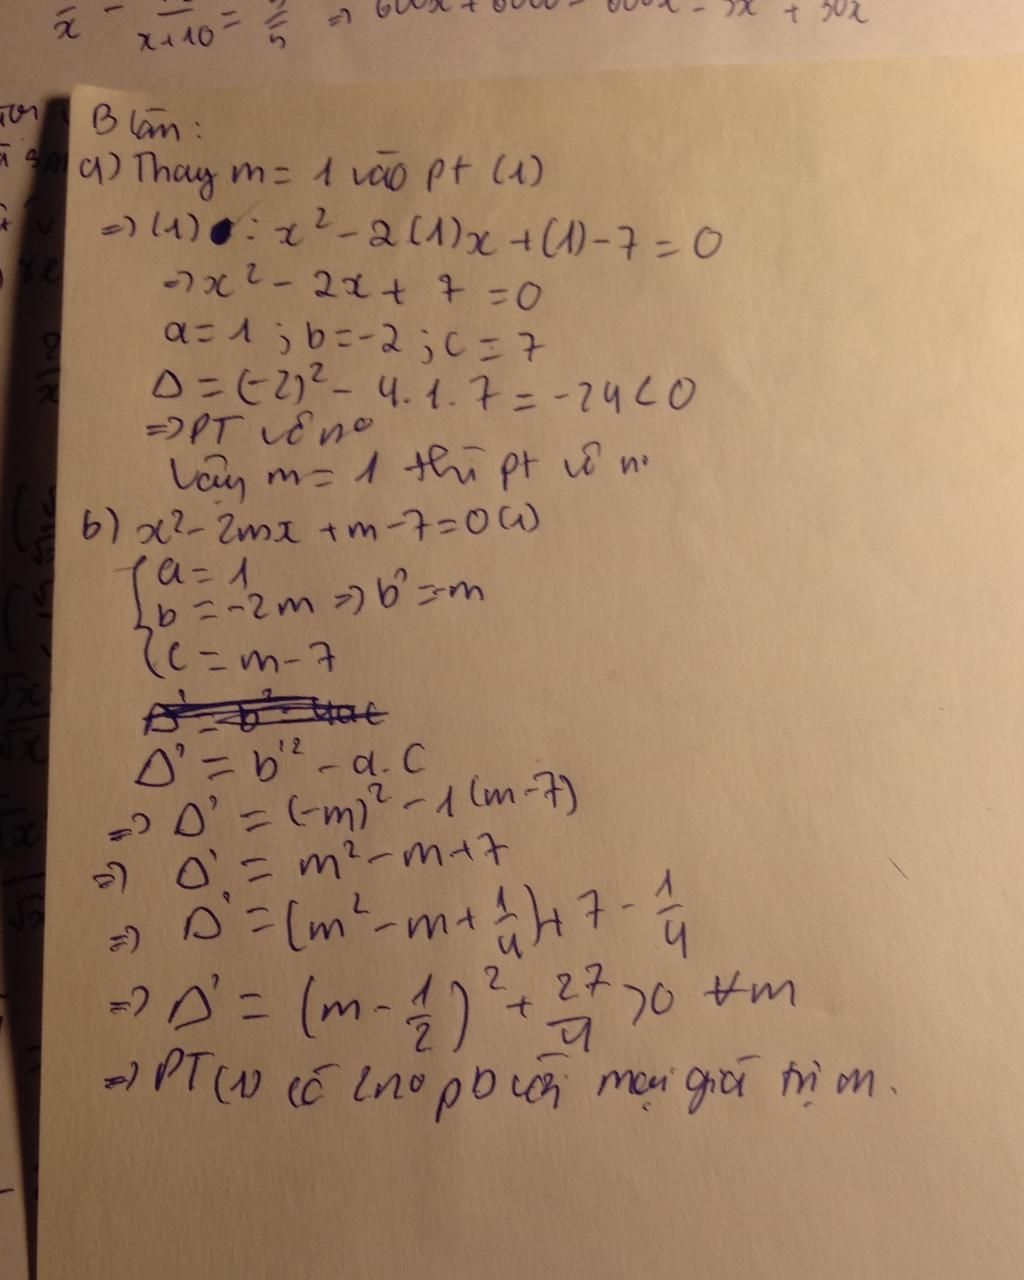 x+10 = 5 ⇒ 600x + 6000 - 600x - 3x + 30x
B làm:
a) Thay m = 1 vào pt (1)
⇒ (1) : x² - 2(1)x + (1) - 7 = 0
⇒ x² - 2x + 7 = 0
a = 1 ; b = -2 ; c = 7
Δ = (-2)² - 4.1.7 = -24 < 0
⇒ PT vô n⁰
Vậy m = 1 thì pt vô n⁰
b) x² - 2mx + m - 7 = 0 (1)
a = 1
b = -2m ⇒ b' = -m
c = m - 7
Δ' = b'² - a.c
⇒ Δ' = (-m)² - 1(m-7)
⇒ Δ' = m² - m + 7
⇒ Δ' = (m² - m + 1/4) + 7 - 1/4
⇒ Δ' = (m - 1/2)² + 27/4 > 0 ∀m
⇒ PT (1) có 2 n⁰ pb với mọi giá trị m.